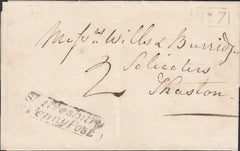 Messrs Wills & Burridge
2
Solicitors
Shaston.
Penny Post